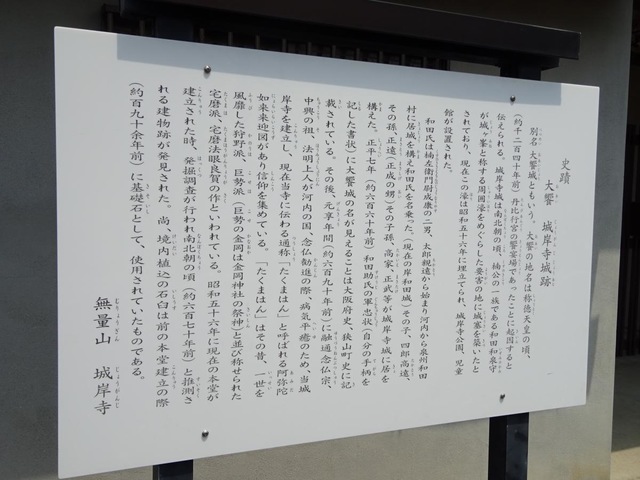 史蹟
大饗 城岸寺城跡
別名 大饗城ともいう。大饗の地名は称徳天皇の頃、
(約千二百四十年前)丹比行宮の饗宴場であったことに起因すると
伝えられる。城岸寺城は南北朝の頃、楠公の一族である和田和泉守
が城ヶ峯と称する周囲濠をめぐらした要害の地に城塞を築いたと
されており、現在この濠は昭和五十六年に埋立てられ、城岸寺公園、児童
館が設置された。
和田氏は楠左衛門尉成康の二男、太郎親遠から始まり河内から泉州和田
村に居城を構え和田氏を名乗った。(現在の岸和田城)その子、四郎高遠、
その孫、正遠(正成の甥)その子孫、高家、正武等が城岸寺城に居を
構えた。正平七年(約六百六十年前)和田助氏の軍忠状(自分の手柄を
記した書状)に大饗城の名が見えることは大阪府史、狭山町史に記
載されている。その後、元享年間(約六百九十年前)に融通念仏宗、
中興の祖、法明上人が河内の国、念仏勧進の際、病気平癒のため、当城
岸寺を建立し、現在当寺に伝わる通称「たくまはん」と呼ばれる阿弥陀
如来来迎図があり信仰を集めている。「たくまはん」はその昔、一世を
風靡した狩野派、巨勢派(巨勢の金岡は金岡神社の祭神)と並び称せられた
宅磨派、宅磨法眼良賀の作といわれている。昭和五十六年に現在の本堂が
建立された時、発掘調査が行われ南北朝の頃(約六百七十年前)と推測さ
れる建物跡が発見された。尚、境内植込の石臼は前の本堂建立の際
(約百九十余年前)に基礎石として、使用されていたものである。
無量山 城岸寺